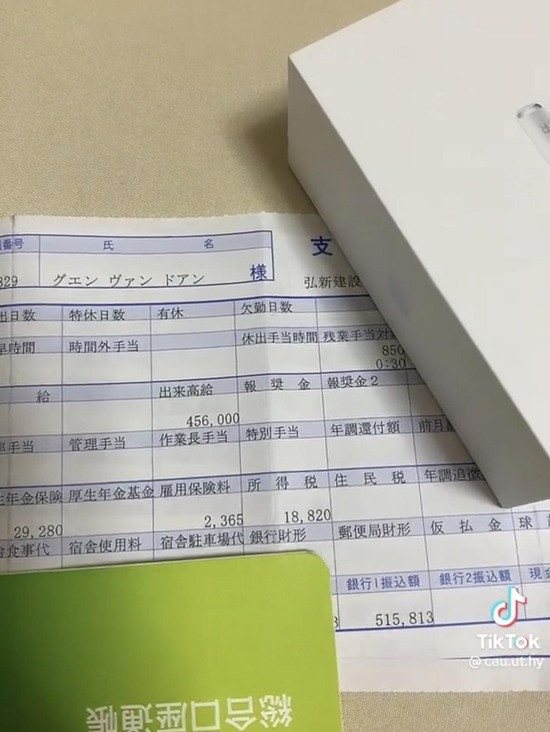 番号 氏 名 支
329 グエン ヴァン ドアン 様 弘新建設
出日数 特休日数 有休 欠勤日数
早時間 時間外手当 休出手当時間 残業手当対
850
0:30
給 出来高給 報奨金 報奨金2
456,000
手当 管理手当 作業長手当 特別手当 年調還付額 前月
生年金保険 厚生年金基金 雇用保険料 所得税 住民税 年調追徴
29,280 2,365 18,820
食事代 宿舎使用料 宿舎駐車場代 銀行財形 郵便局財形 仮払金 球
銀行1振込額 銀行2振込額 現金
3 515,813
総合口座通帳
TikTok
@cau.ut.hy